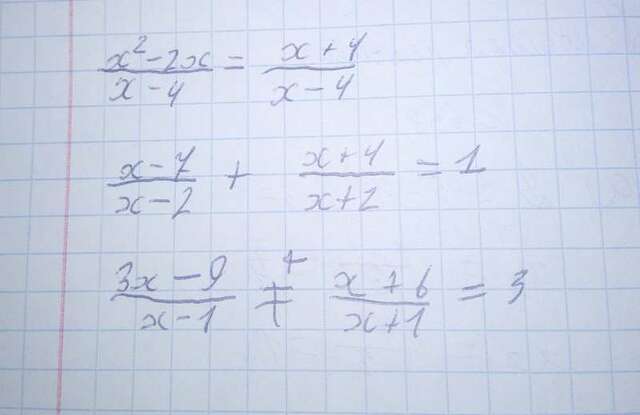 x² - 2x / x - 4 = x + 4 / x - 4
x - 7 / x - 2 + x + 4 / x + 2 = 1
3x - 9 / x - 1 + x + 6 / x + 1 = 3